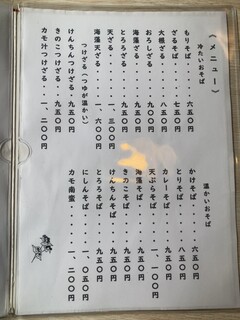 《メニュー》
冷たいおそば
もりそば・・・六五〇円
ざるそば・・・七五〇円
大根ざる・・・八五〇円
おろしざる・・・九五〇円
海藻ざる・・・九五〇円
とろろざる・・・九五〇円
天ざる・・・一、三〇〇円
海藻天ざる・・・一、六〇〇円
つけざる(つゆが温かい)
けんちんつけざる・・九五〇円
きのこつけざる・・・九五〇円
カモ汁つけざる・・一、二〇〇円
温かいおそば
かけそば・・・・六五〇円
とりそば・・・・八五〇円
カレーそば・・・九五〇円
天ぷらそば・・一、一〇〇円
海藻そば・・・・九五〇円
きのこそば・・・九五〇円
けんちんそば・・九五〇円
とろろそば・・・九五〇円
にしんそば・・一、〇五〇円
カモ南蛮・・・一、二〇〇円